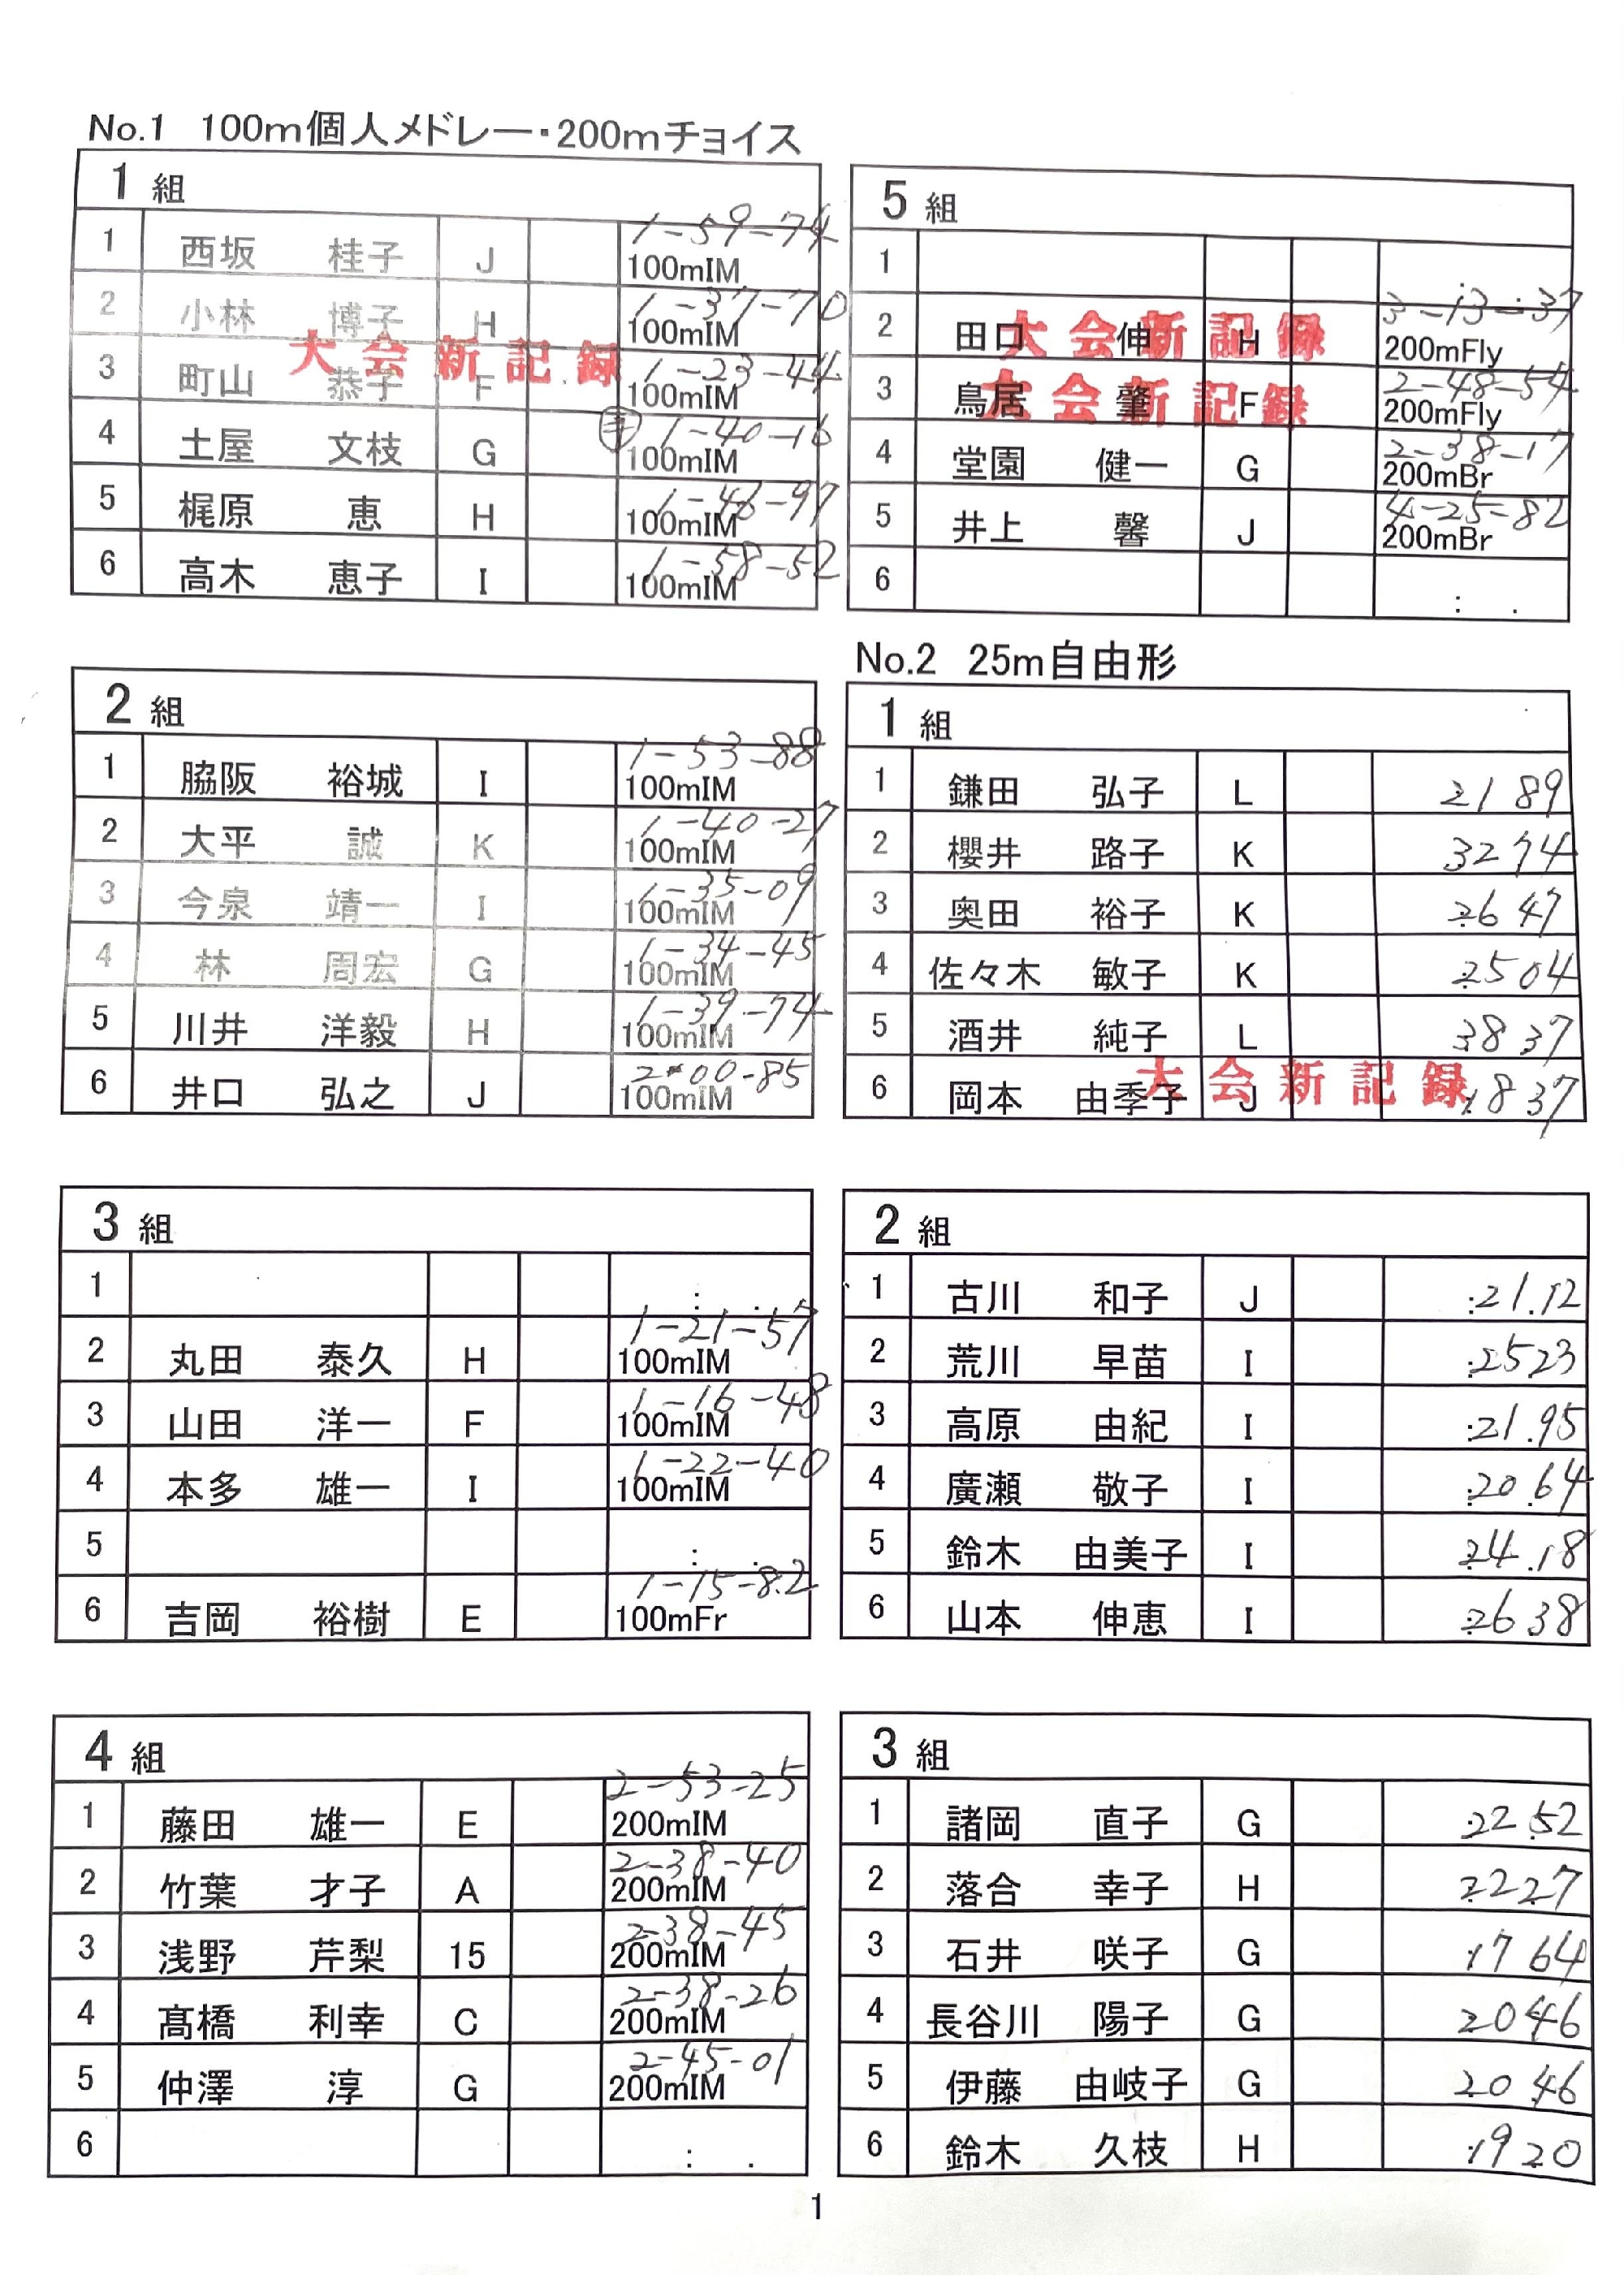 No.1 100m個人メドレー・200mチョイス
1 組
1 西坂 桂子 J 1-59-74 100mIM
2 小林 博子 H 1-37-70 100mIM
大会新記録
3 町山 恭子 F 1-23-44 100mIM
4 土屋 文枝 G 手 1-40-16 100mIM
5 梶原 恵 H 1-46-97 100mIM
6 高木 恵子 I 1-58-52 100mIM
2 組
1 脇阪 裕城 I 1-53-88 100mIM
2 大平 誠 K 1-40-27 100mIM
3 今泉 靖一 I 1-35-09 100mIM
4 林 周宏 G 1-34-45 100mIM
5 川井 洋毅 H 1-39-74 100mIM
6 井口 弘之 J 2-00-85 100mIM
3 組
1 : .
2 丸田 泰久 H 1-21-57 100mIM
3 山田 洋一 F 1-16-48 100mIM
4 本多 雄一 I 1-22-40 100mIM
5 : .
6 吉岡 裕樹 E 1-15-82 100mFr
4 組
1 藤田 雄一 E 2-53-25 200mIM
2 竹葉 才子 A 2-38-40 200mIM
3 浅野 芹梨 15 2-38-45 200mIM
4 髙橋 利幸 C 2-38-26 200mIM
5 仲澤 淳 G 2-45-01 200mIM
6 : .
5 組
1
2 田口 伸 H 3-13-37 200mFly
大会新記録
3 鳥居 肇 F 2-48-54 200mFly
大会新記録
4 堂園 健一 G 2-38-17 200mBr
5 井上 馨 J 4-25-82 200mBr
6 : .
No.2 25m自由形
1 組
1 鎌田 弘子 L 21 89
2 櫻井 路子 K 32 74
3 奥田 裕子 K 26 47
4 佐々木 敏子 K 25 04
5 酒井 純子 L 38 37
大会新記録
6 岡本 由季子 J 18 37
2 組
1 古川 和子 J :21.12
2 荒川 早苗 I :25.23
3 高原 由紀 I :21.95
4 廣瀬 敬子 I :20.64
5 鈴木 由美子 I 24.18
6 山本 伸恵 I 26 38
3 組
1 諸岡 直子 G 22.52
2 落合 幸子 H 22.27
3 石井 咲子 G :17 64
4 長谷川 陽子 G 20 46
5 伊藤 由岐子 G 20 46
6 鈴木 久枝 H :19 20
1